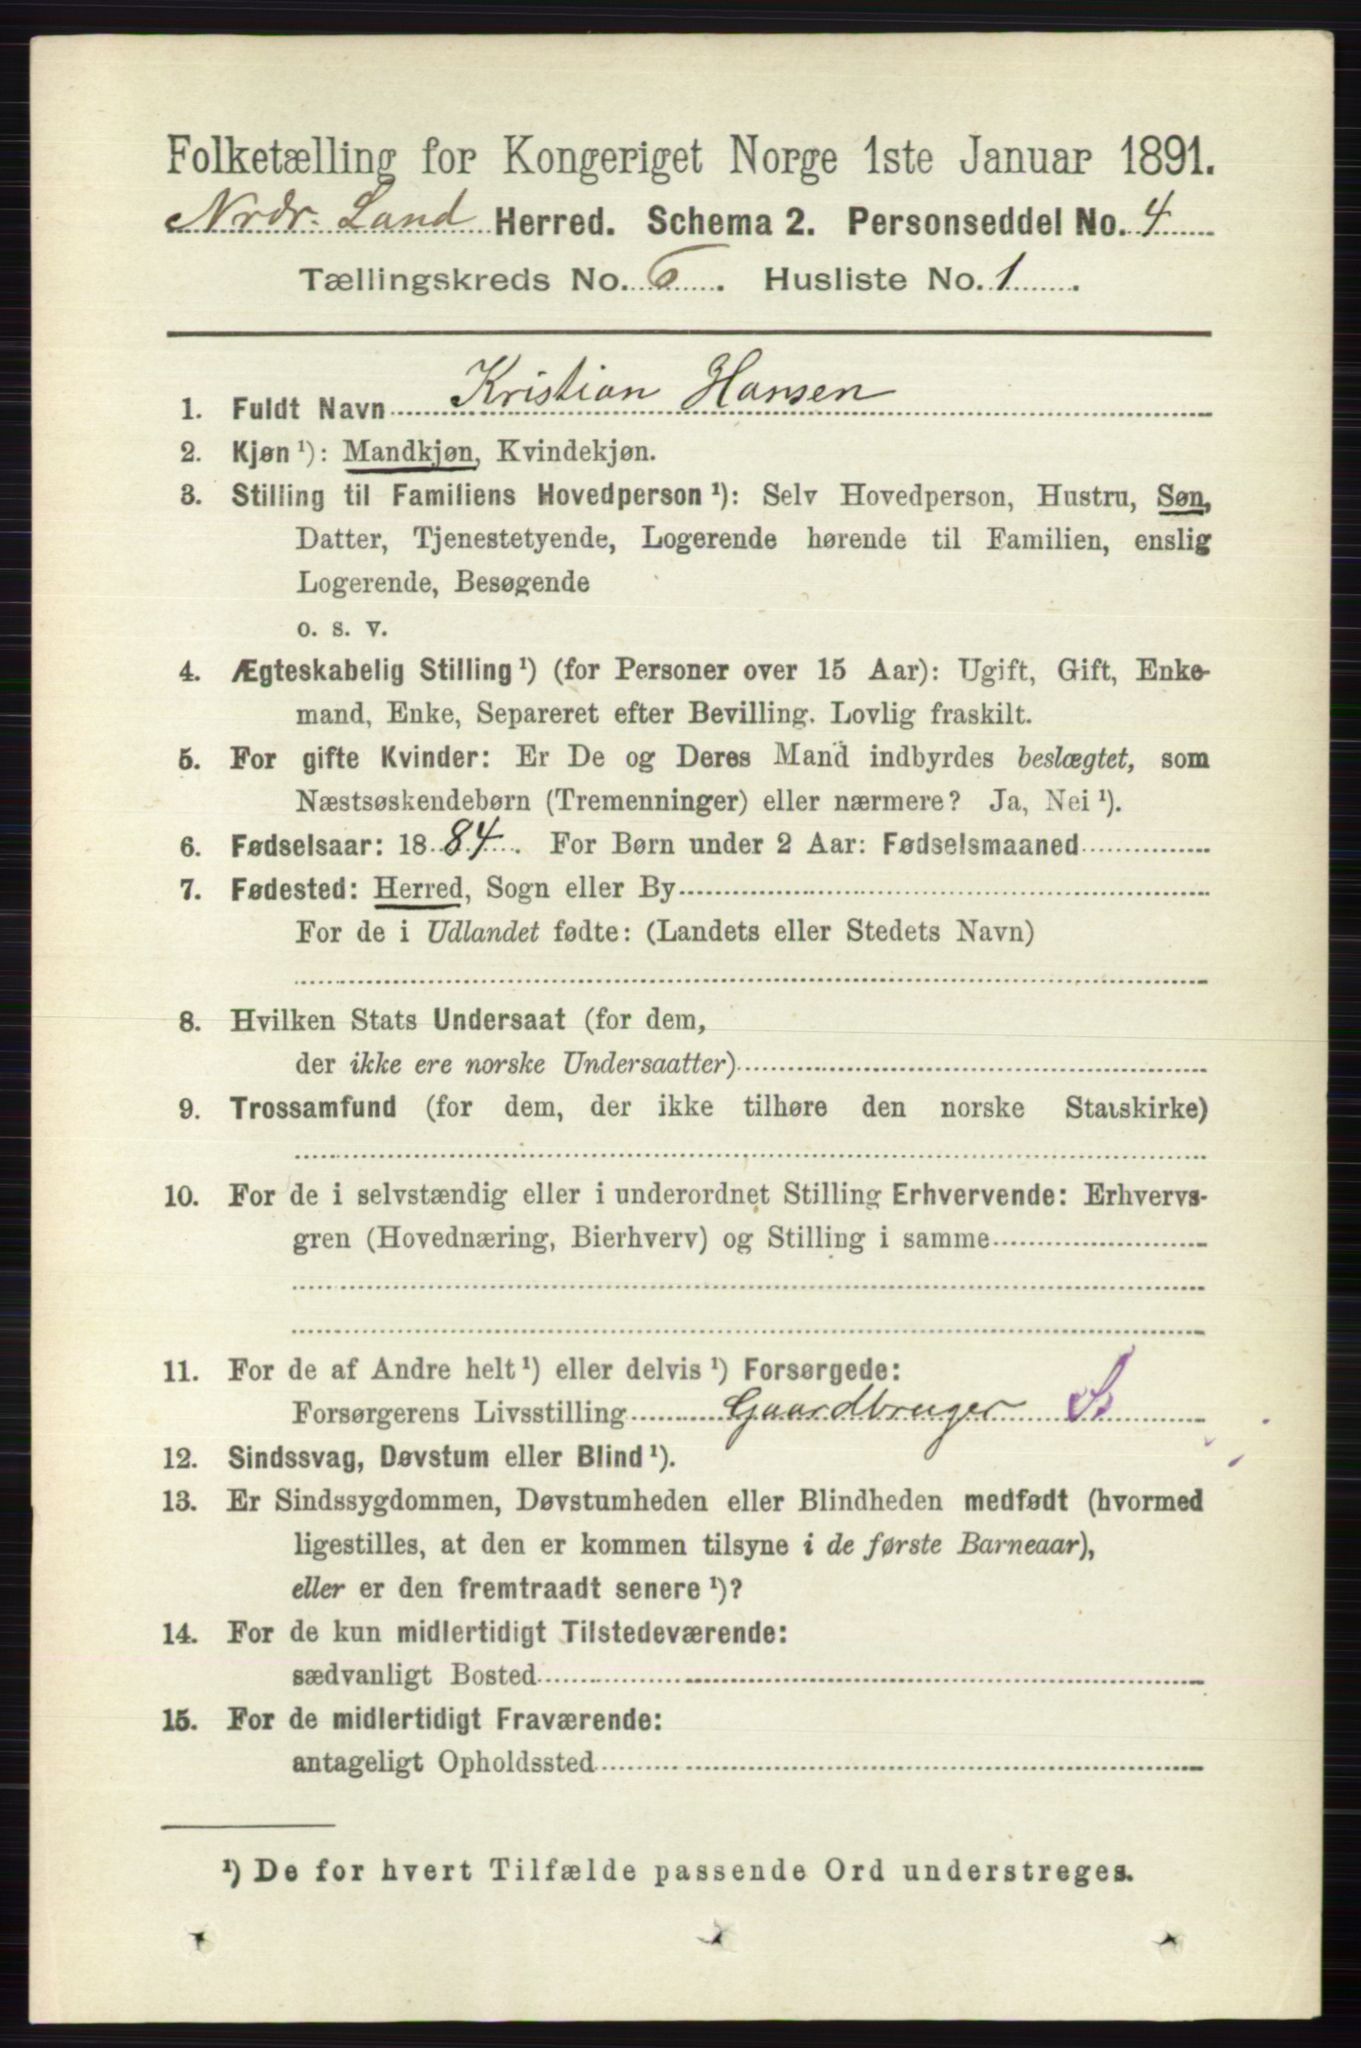 Folketælling for Kongeriget Norge 1ste Januar 1891.
Nrdr. Land Herred. Schema 2. Personseddel No. 4
Tællingskreds No. 6. Husliste No. 1.
1. Fuldt Navn Kristian Hansen
2. Kjøn ¹): Mandkjøn, Kvindekjøn.
3. Stilling til Familiens Hovedperson ¹): Selv Hovedperson, Hustru, Søn,
Datter, Tjenestetyende, Logerende hørende til Familien, enslig
Logerende, Besøgende
o. s. v.
4. Ægteskabelig Stilling ¹) (for Personer over 15 Aar): Ugift, Gift, Enke-
mand, Enke, Separeret efter Bevilling. Lovlig fraskilt.
5. For gifte Kvinder: Er De og Deres Mand indbyrdes beslægtet, som
Næstsøskendebørn (Tremenninger) eller nærmere? Ja, Nei ¹).
6. Fødselsaar: 1884. For Børn under 2 Aar: Fødselsmaaned
7. Fødested: Herred, Sogn eller By
For de i Udlandet fødte: (Landets eller Stedets Navn)
8. Hvilken Stats Undersaat (for dem,
der ikke ere norske Undersaatter)
9. Trossamfund (for dem, der ikke tilhøre den norske Statskirke)
10. For de i selvstændig eller i underordnet Stilling Erhvervende: Erhvervs-
gren (Hovednæring, Bierhverv) og Stilling i samme
11. For de af Andre helt ¹) eller delvis ¹) Forsørgede:
Forsørgerens Livsstilling Gaardbruger S
12. Sindssvag, Døvstum eller Blind ¹).
13. Er Sindssygdommen, Døvstumheden eller Blindheden medfødt (hvormed
ligestilles, at den er kommen tilsyne i de første Barneaar),
eller er den fremtraadt senere ¹)?
14. For de kun midlertidigt Tilstedeværende:
sædvanligt Bosted
15. For de midlertidigt Fraværende:
antageligt Opholdssted
¹) De for hvert Tilfælde passende Ord understreges.